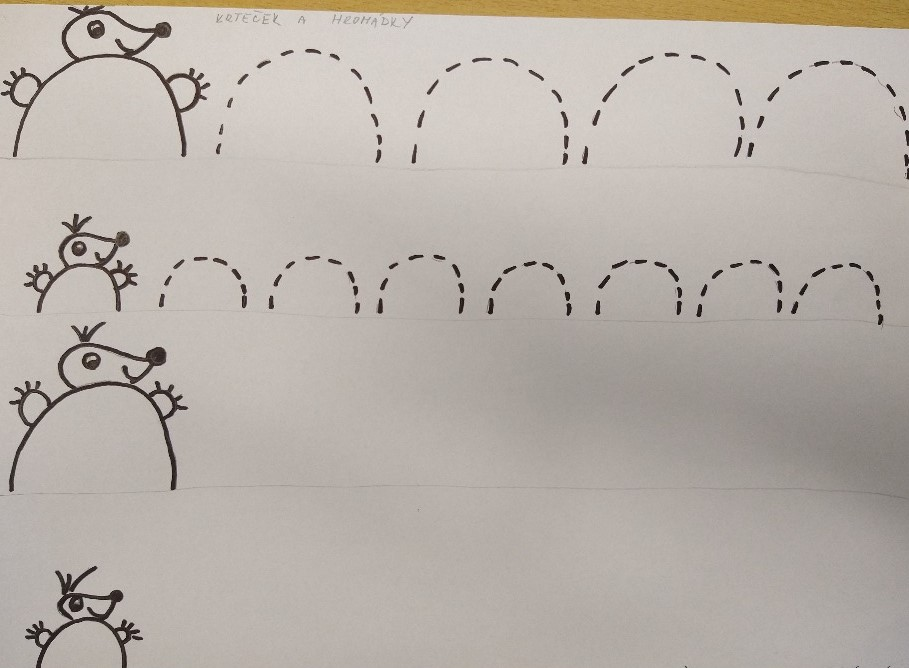 KRTEČEK A HROMÁDKY